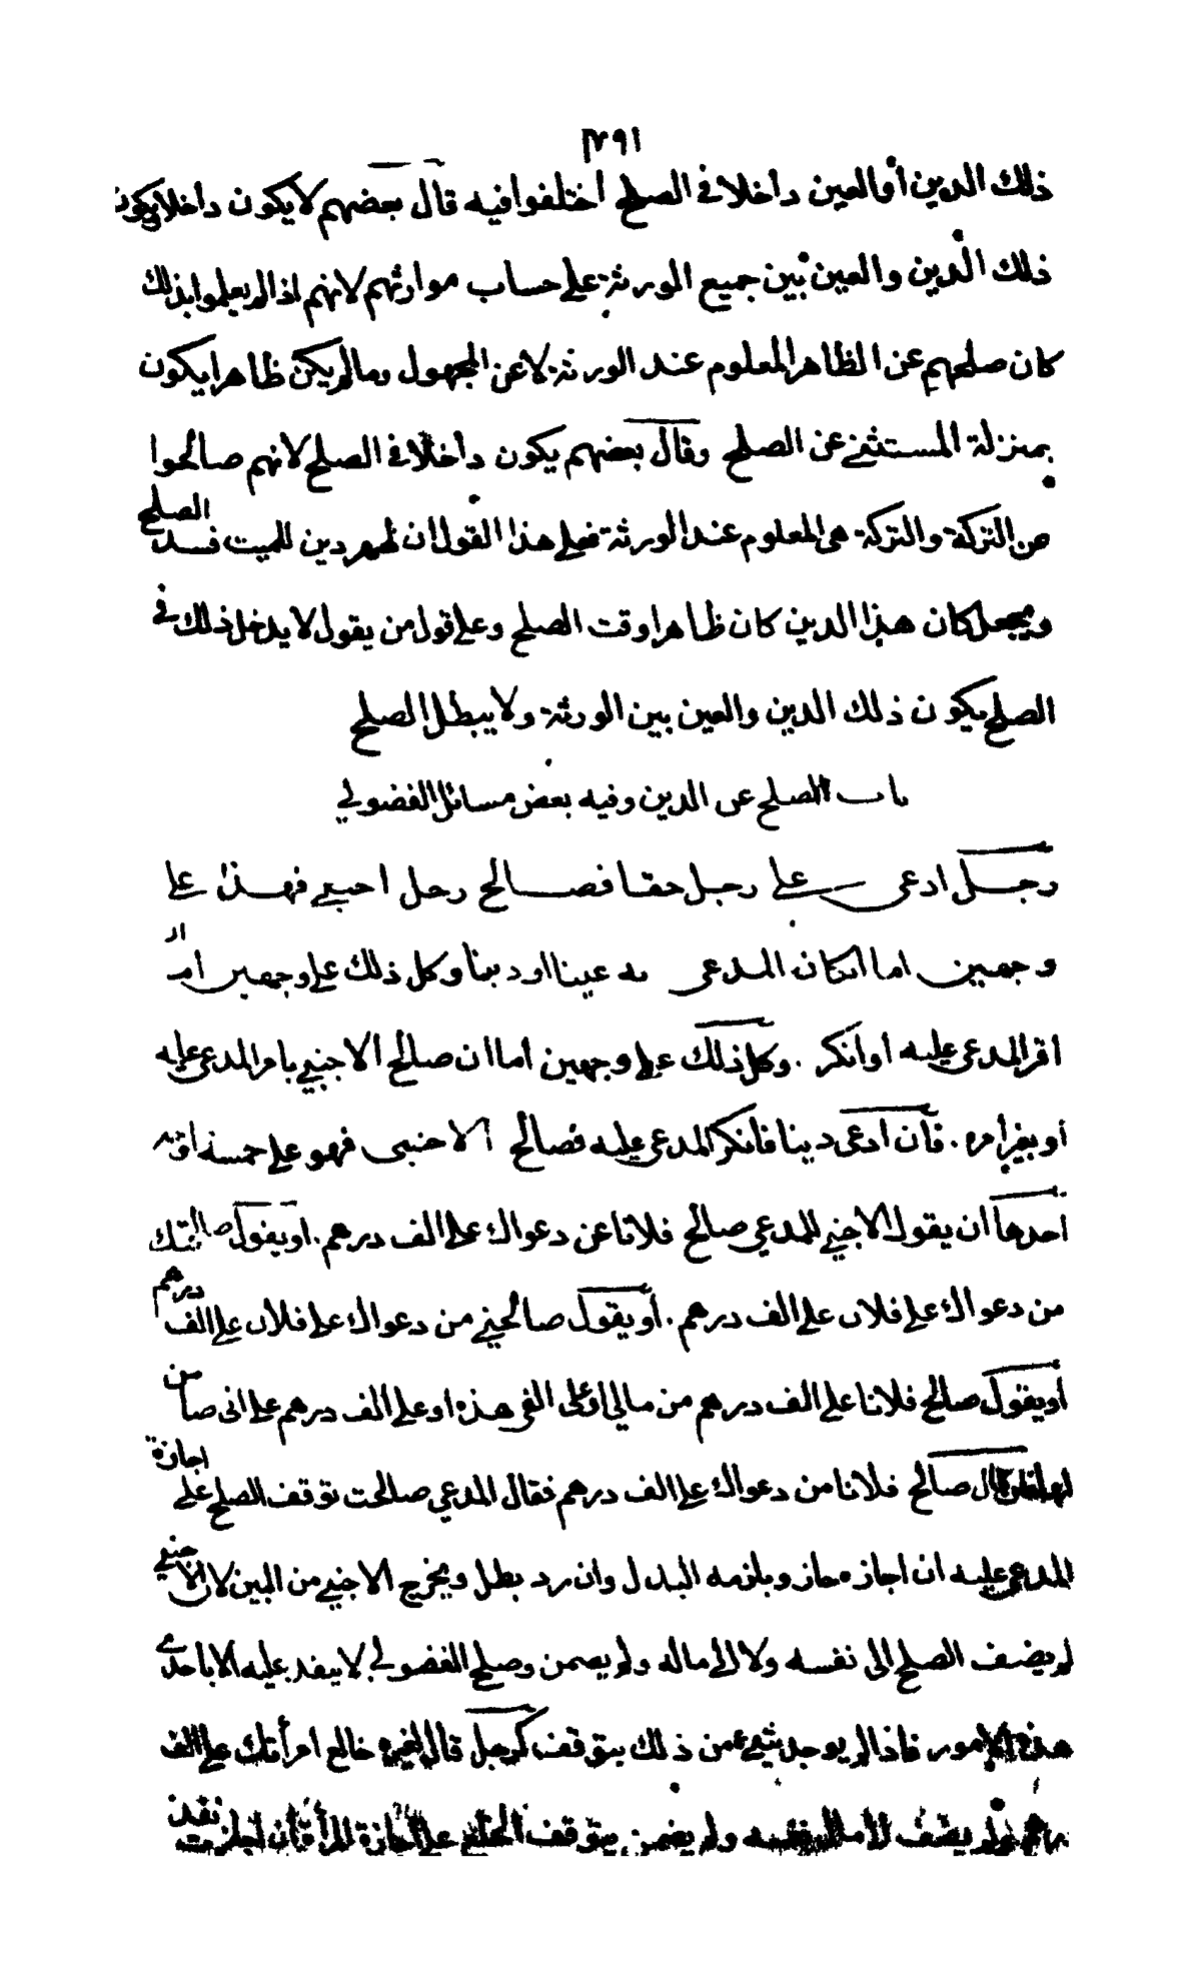 ٢٩١
ذلك الدين أو العين داخلا في الصلح اختلفوا فيه قال بعضهم لا يكون داخلا ويكون
ذلك الدين والعين بين جميع الورثة على حساب مواريثهم لانهم اذا لم يعلموا بذلك
كان صلحهم عن الظاهر المعلوم عند الورثة لا عن المجهول وما لم يكن ظاهرا يكون
بمنزلة المستثنى عن الصلح وقال بعضهم يكون داخلا في الصلح لانهم صالحوا
عن التركة والتركة هي المعلوم عند الورثة فعلى هذا القول ان ظهر دين للميت فسد الصلح
ويجعل كان هذا الدين كان ظاهرا وقت الصلح وعلى قول من يقول لا يدخل ذلك في
الصلح يكون ذلك الدين والعين بين الورثة ولا يبطل الصلح
باب الصلح عن الدين وفيه بعض مسائل الفضولي
رجل ادعى على رجل حقا فصالح رجل اجنبي فهذا على
وجهين اما ان كان المدعى به عينا او دينا وكل ذلك على وجهين اما ان
اقر المدعى عليه او انكر . وكل ذلك على وجهين اما ان صالح الاجنبي بامر المدعى عليه
او بغير امره . فان ادعى دينا فانكر المدعى عليه فصالح الاجنبي فهو على خمسة اوجه
احدها ان يقول الاجنبي للمدعي صالح فلانا عن دعواك على الف درهم . او يقول صالحتك
من دعواك على فلان على الف درهم . أو يقول صالحني من دعواك على فلان على الف درهم
أو يقول صالح فلانا على الف درهم من مالي او على الفي هذه او على الف درهم على اني ضامن
لها فان قال صالح فلانا من دعواك على الف درهم فقال المدعي صالحت توقف الصلح على اجازة
المدعى عليه ان اجازه جاز ويلزمه البدل وان رد بطل ويخرج الاجنبي من البين لان الاجنبي
لم يضف الصلح الى نفسه ولا الى ماله ولم يضمن وصلح الفضولي لا ينفد عليه الا باحدى
هذه الامور فاذا لم يوجد شيء من ذلك يتوقف كرجل قال لغيره خالع امرأتك على الف
درهم ولم يضف الى نفسه ولم يضمن يتوقف الخلع على اجازة المرأة ان اجازت نفذ